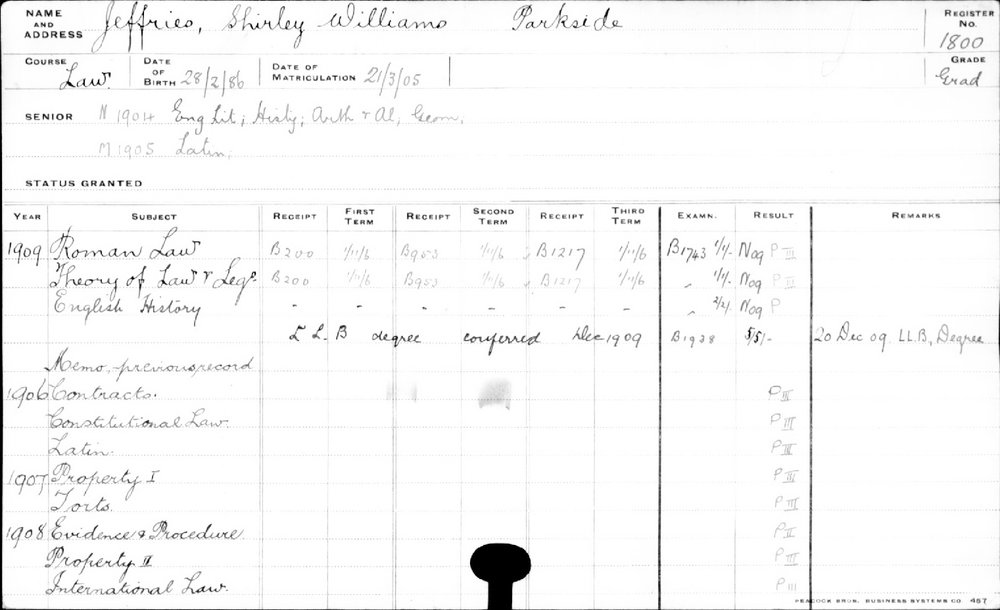 NAME AND ADDRESS Jeffries, Shirley Williams Parkside REGISTER No. 1800
COURSE Law. DATE OF BIRTH 28/2/86 DATE OF MATRICULATION 21/3/05 GRADE Grad
SENIOR N 1904 Eng Lit; Histy; Arth & Al, Geom;
M 1905 Latin;
STATUS GRANTED
YEAR SUBJECT RECEIPT FIRST TERM RECEIPT SECOND TERM RECEIPT THIRD TERM EXAMN. RESULT REMARKS
1909 Roman Law B200 1/11/6 B953 1/11/6 B1217 1/11/6 B1743 1/1/- Nog P III
Theory of Law & Legn B200 1/11/6 B953 1/11/6 B1217 1/11/6 " 1/1/- Nog P III
English History - - - - - - " 2/2/- Nog P
LL.B degree conferred Dec 1909 B1938 5/5/- 20 Dec 09. LL.B, Degree
Memo, previous record
1906 Contracts. P III
Constitutional Law. P III
Latin. P III
1907 Property I P III
Torts. P III
1908 Evidence & Procedure P II
Property II P III
International Law. P III
PEACOCK BROS. BUSINESS SYSTEMS CO 457